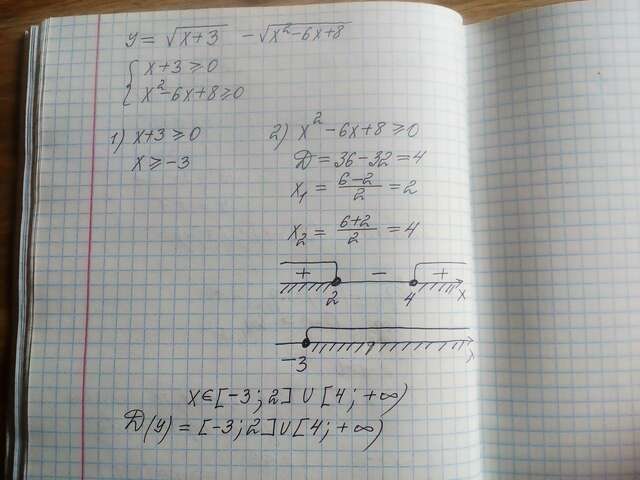 y = √(x+3) - √(x²-6x+8)
{ x+3 ≥ 0
x²-6x+8 ≥ 0
1) x+3 ≥ 0
x ≥ -3
2) x²-6x+8 ≥ 0
D = 36-32 = 4
x₁ = (6-2)/2 = 2
x₂ = (6+2)/2 = 4
+ - +
2 4 x
-3
x ∈ [-3; 2] ∪ [4; +∞)
D(y) = [-3; 2] ∪ [4; +∞)